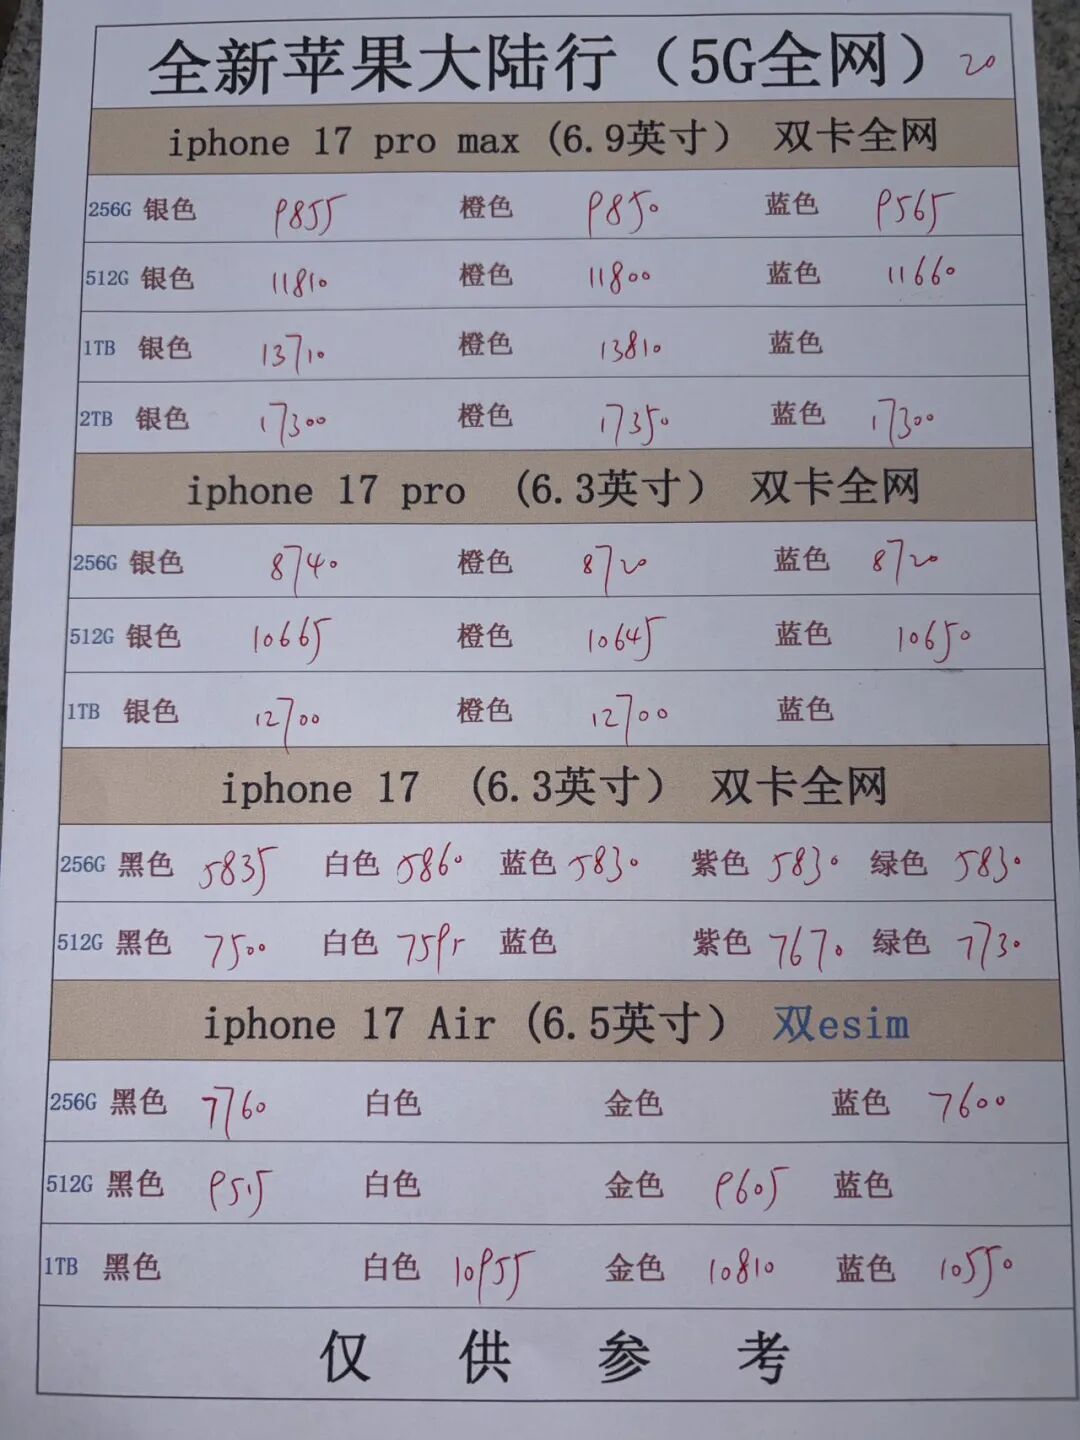 全新苹果大陆行（5G全网） 20
iphone 17 pro max (6.9英寸） 双卡全网
256G 银色 9855 橙色 9850 蓝色 9565
512G 银色 11810 橙色 11800 蓝色 11660
1TB 银色 13710 橙色 13810 蓝色
2TB 银色 17300 橙色 17350 蓝色 17300
iphone 17 pro （6.3英寸） 双卡全网
256G 银色 8740 橙色 8720 蓝色 8720
512G 银色 10665 橙色 10645 蓝色 10650
1TB 银色 12700 橙色 12700 蓝色
iphone 17 （6.3英寸） 双卡全网
256G 黑色 5835 白色 5860 蓝色 5830 紫色 5830 绿色 5830
512G 黑色 7500 白色 7595 蓝色 紫色 7670 绿色 7730
iphone 17 Air (6.5英寸） 双esim
256G 黑色 7760 白色 金色 蓝色 7600
512G 黑色 9515 白色 金色 9605 蓝色
1TB 黑色 白色 10955 金色 10810 蓝色 10550
仅供参考